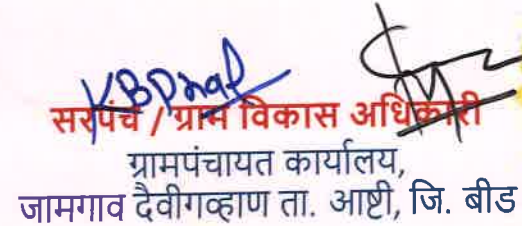 सरपंच / ग्राम विकास अधिकारी
ग्रामपंचायत कार्यालय,
जामगाव दैवीगव्हाण ता. आष्टी, जि. बीड